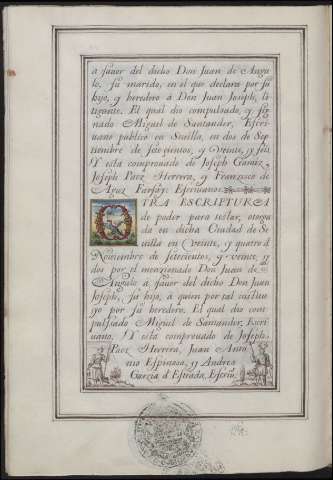 a fauer del dicho Don Juan de Angu-
lo, su marido, en el que declara por su
hijo, y heredero â Don Juan Joseph, li-
tigante. El qual dio compulsado, y sig-
nado Miguel de Santander, Escri-
uano publico en Sevilla, en dos de Sep-
tiembre de setecientos, y veinte, y seis.
Y està comprouado de Joseph Gamiz,
Joseph Paez Herrera, y Francisco de
Aguz Farfan, Escriuanos.
OTRA ESCRIPTURA
de poder para testar, otorga-
da en dicha Ciudad de Se-
uilla en veinte, y quatro d
Noviembre de setecientos, y veinte, y
dos por el mencionado Don Juan de
Angulo â fauer del dicho Don Juan
Joseph, su hijo, â quien por tal institu-
yo por su heredero. El qual dio com-
pulsado Miguel de Santander, Escri-
uano. Y està comprouado de Joseph
Paez Herrera, Juan Anto-
nio Espinosa, y Andres
Garcia d Estrada, Escriu.